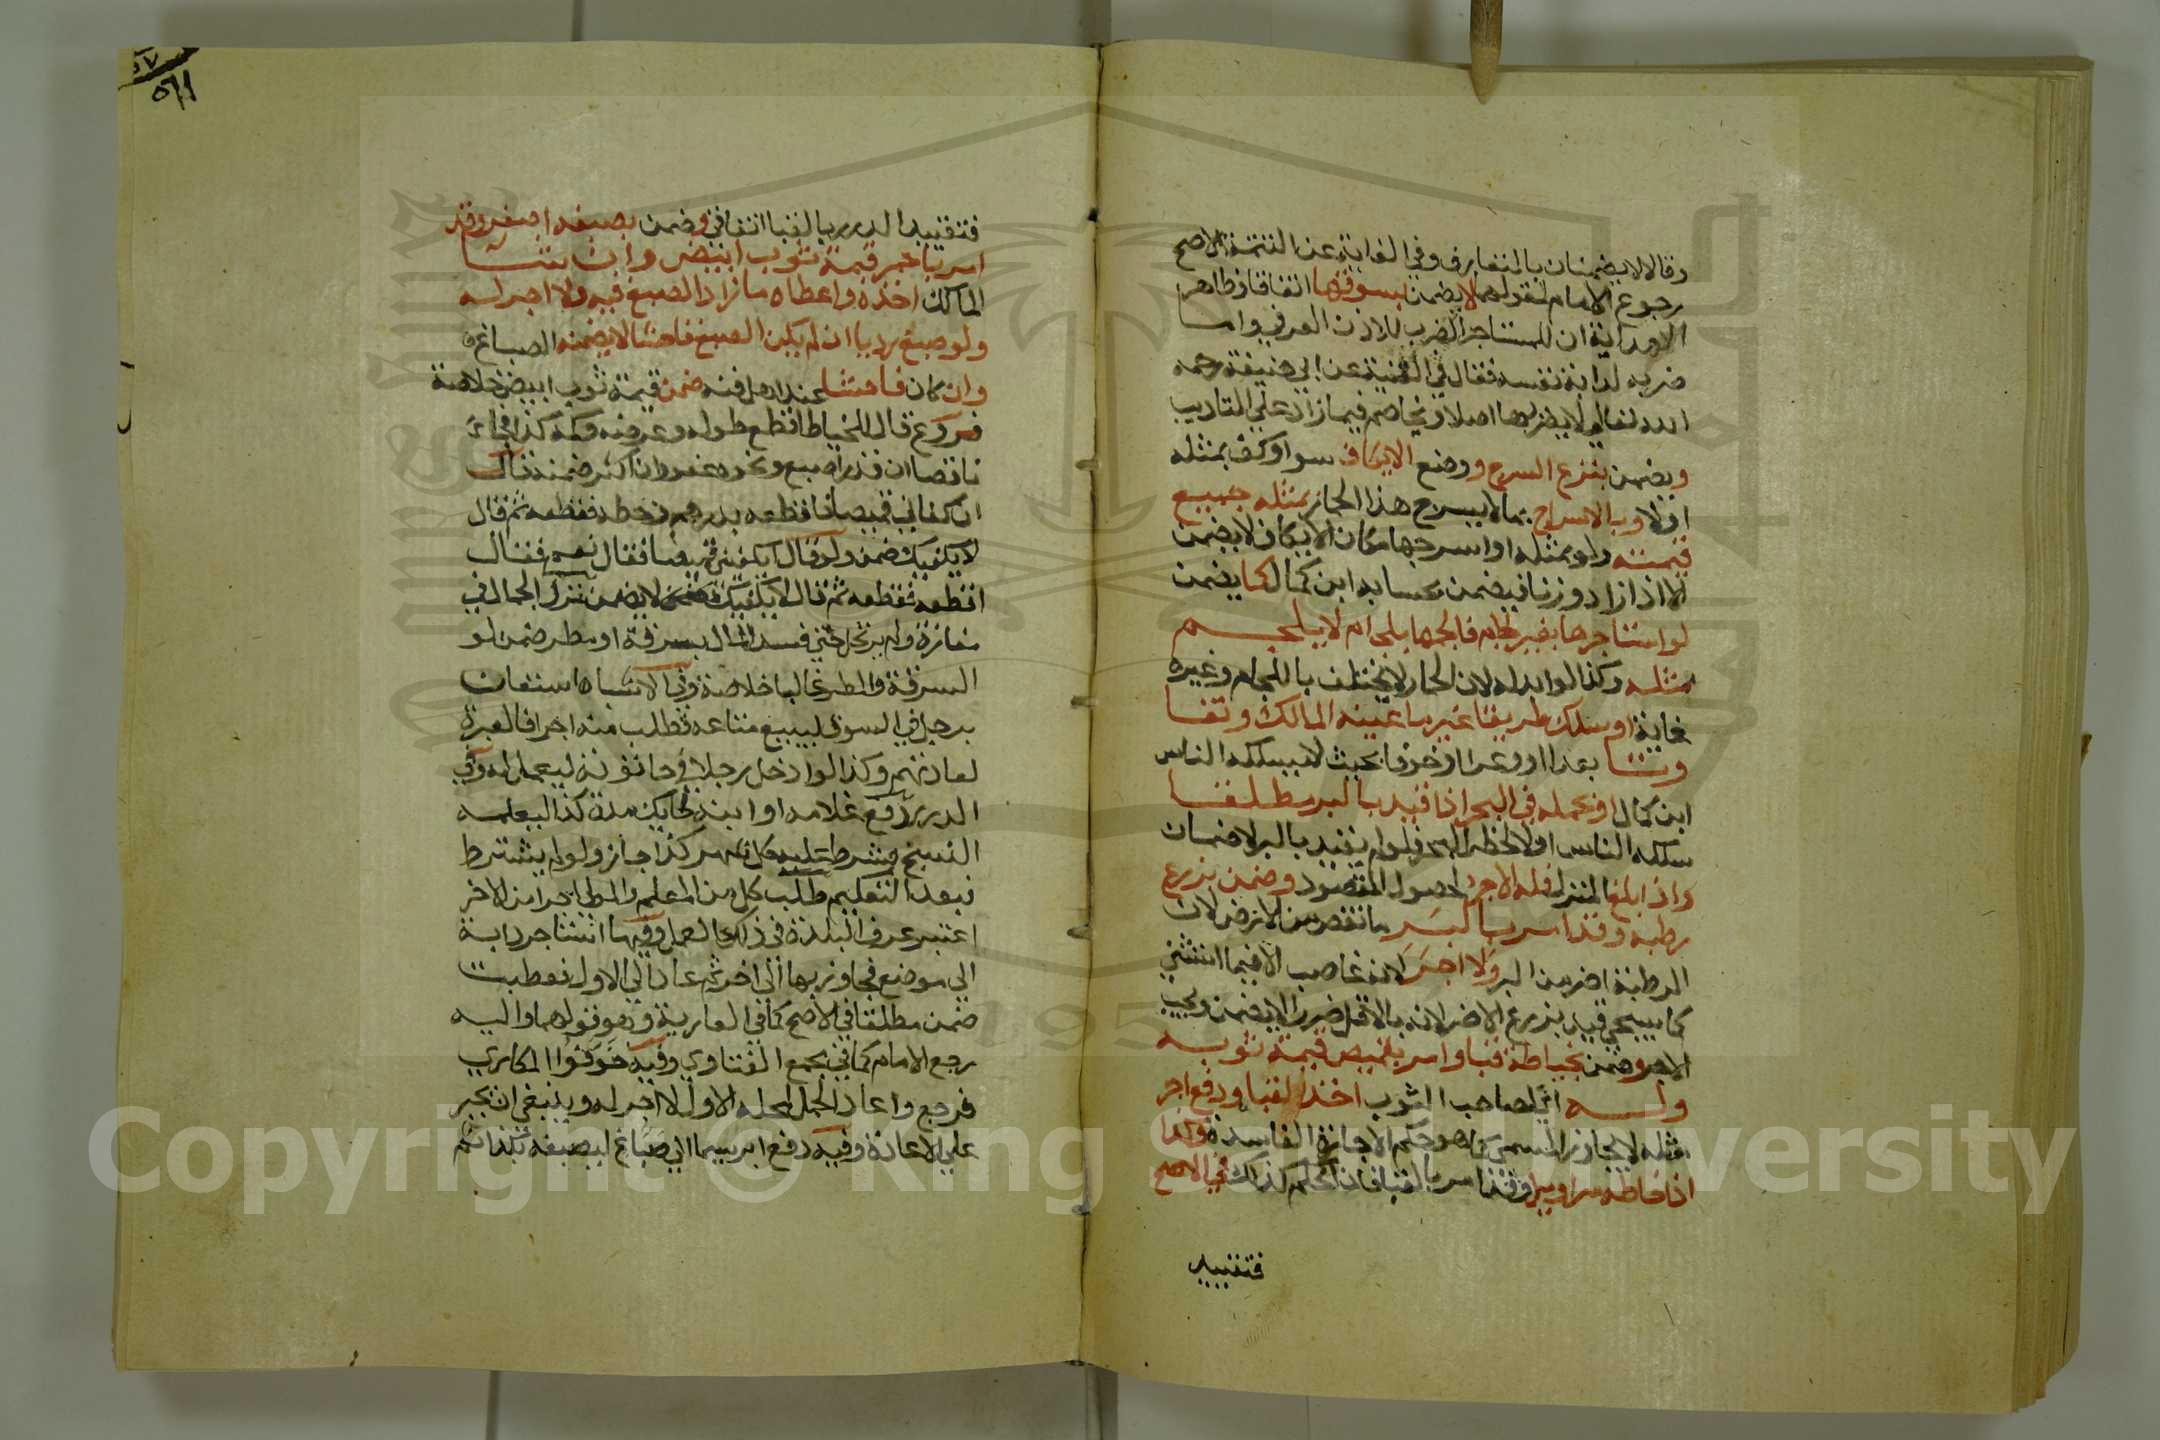 وقالا لا يضمنان بالمتعارف وفي الغاية عن التتمة الاصح
رجوع الامام لقولهما لا يضمن بسوقها اتفاقا وظاهر
الهداية ان للمستاجر الضرب للاذن العرفي واما
ضربه لدابة نفسه فقال في القنية عن ابي حنيفة رحمه
الله تعالى لا يضربها اصلا ويخاصم فيما زاد علي التاديب
ويضمن بنزع السرج ووضع الايكاف سوا وكف بمثله
اولا وبالاسراج بما لا يسرج هذا الحمار بمثله جميع
قيمته ولو بمثله او اسرجها مكان الايكاف لا يضمن
الا اذا زاد وزنا فيضمن بحسابه ابن كمال كما يضمن
لو استاجرها بغير لجام فالجمها بلجام لا يلجم
مثله وكذا لو ابدله لان الحمار لا يختلف باللجام وغيره
غاية او سلك طريقا غير ما عينه المالك وتفا
وتـا بعدا او وعرا او خوفا بحيث لا يسلكه الناس
ابن كمال او حمله في البحر اذا قيد بالبر مطلقا
سلكه الناس اولا لخطر البحر فلو لم يقيد بالبر لا ضمان
واذا بلغ المنزل فله الاجر لحصول المقصود وضمن بزرع
رطبة وقد امر بالبر ما نقص من الارض لان
الرطبة اضر من البر ولا اجر لانه غاصب الا فيما استثني
كما سيجي قيد بزرع الاضر لانه بالاقل ضررا لا يضمن ويجب
الاجر وضمن بخياطة قبا وامر بقميص قيمة ثوبه
وله اي لصاحب الثوب اخذ القبا ودفع اجر
مثله لا يجاوز المسمى كما هو حكم الاجارة الفاسدة وكذا
اذا خاطه سراويل وقد امر بالقبا فان الحكم كذلك في الاصح
فتقييد
فتقييد الدرر بالقبا اتفاقي وضمن بصبغه اصفر وقد
امر باحمر قيمة ثوب ابيض وان شا
المالك اخذه واعطاه ما زاد الصبغ فيه ولا اجر له
ولو صبغ رديا ان لم يكن الصبغ فاحشا لا يضمنه الصباغ
وان كان فاحشا عند اهل فنه ضمن قيمة ثوب ابيض خلاصة
فروع قال للخياط اقطع طوله وعرضه وكمه كذا فجا
ناقصا ان قدر اصبع ونحوه عفو وان اكثر ضمنه قال
ان كفاني قميصا فاقطعه بدرهم وخطه فقطعه ثم قال
لا يكفيك ضمنه ولو قال ايكفيني قميصا فقال نعم فقال
اقطعه فقطعه ثم قال لا يكفيك لا يضمن نزل الجمال في
مفازة ولم يرتحل حتي فسد المال بسرقة او مطر ضمن لو
السرقة والمطر غالبا خلاصة وفي الاشباه استعان
برجل في السوق ليبيع متاعه فطلب منه اجرا فالعبرة
لعادتهم وكذا لو ادخل رجلا في حانوته ليعمل له وفي
الدرر دفع غلامه او ابنه لحايك مدة كذا ليعلمه
النسج وشرط عليه كل شهر كذا جاز ولو لم يشترط
فبعد التعليم طلب كل من المعلم والمولى اجرا من الاخر
اعتبر عرف البلدة في ذلك العمل وفيها استاجر دابة
الي موضع فجاوز بها الي اخر ثم عاد الي الاول فعطبت
ضمن مطلقا في الاصح كما في العارية وهو قولهما واليه
رجع الامام كما في مجمع الفتاوي وفيه خوفوا المكاري
فرجع واعاد الحمل لمحله الاول لا اجر له وينبغي ان يجبر
علي الاعادة وفيه دفع ابريسما الي صباغ ليصبغه بكذا ثم
Copyright © King Saud University